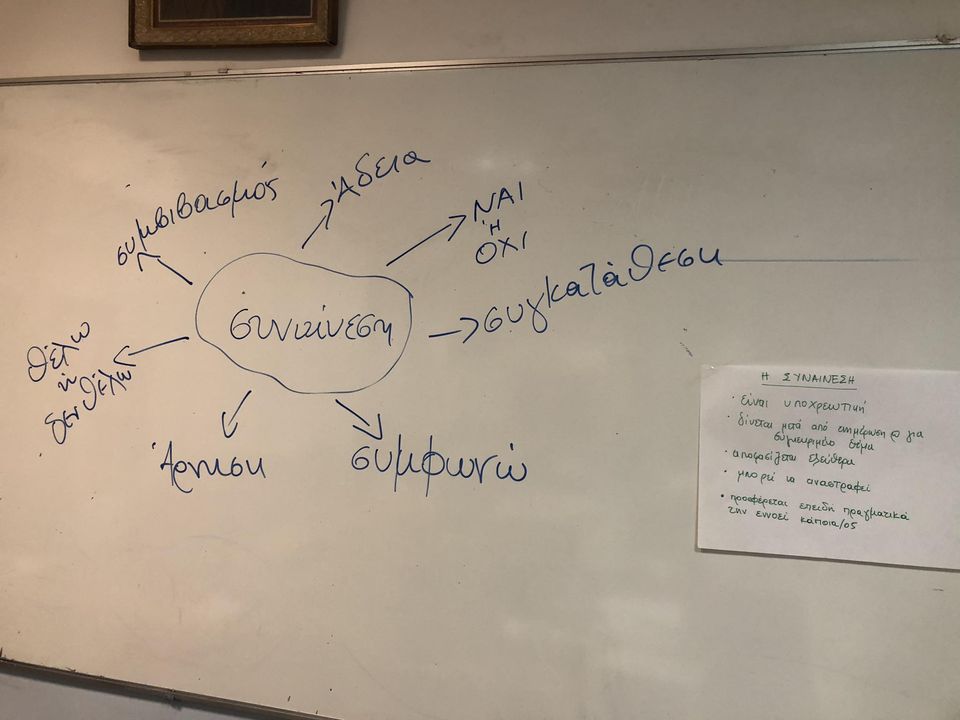 συμβιβασμός
Άδεια
ΝΑΙ
Ή
ΟΧΙ
συγκατάθεση
συναίνεση
θέλω
ή
δεν θέλω
Άρνηση
συμφωνώ
Η ΣΥΝΑΙΝΕΣΗ
• είναι υποχρεωτική
• δίνεται μετά από ενημέρωση για
συγκεκριμένο θέμα
• αποφασίζεται ελεύθερα
• μπορεί να αναστραφεί
• προσφέρεται επειδή πραγματικά
την εννοεί κάποια/ος